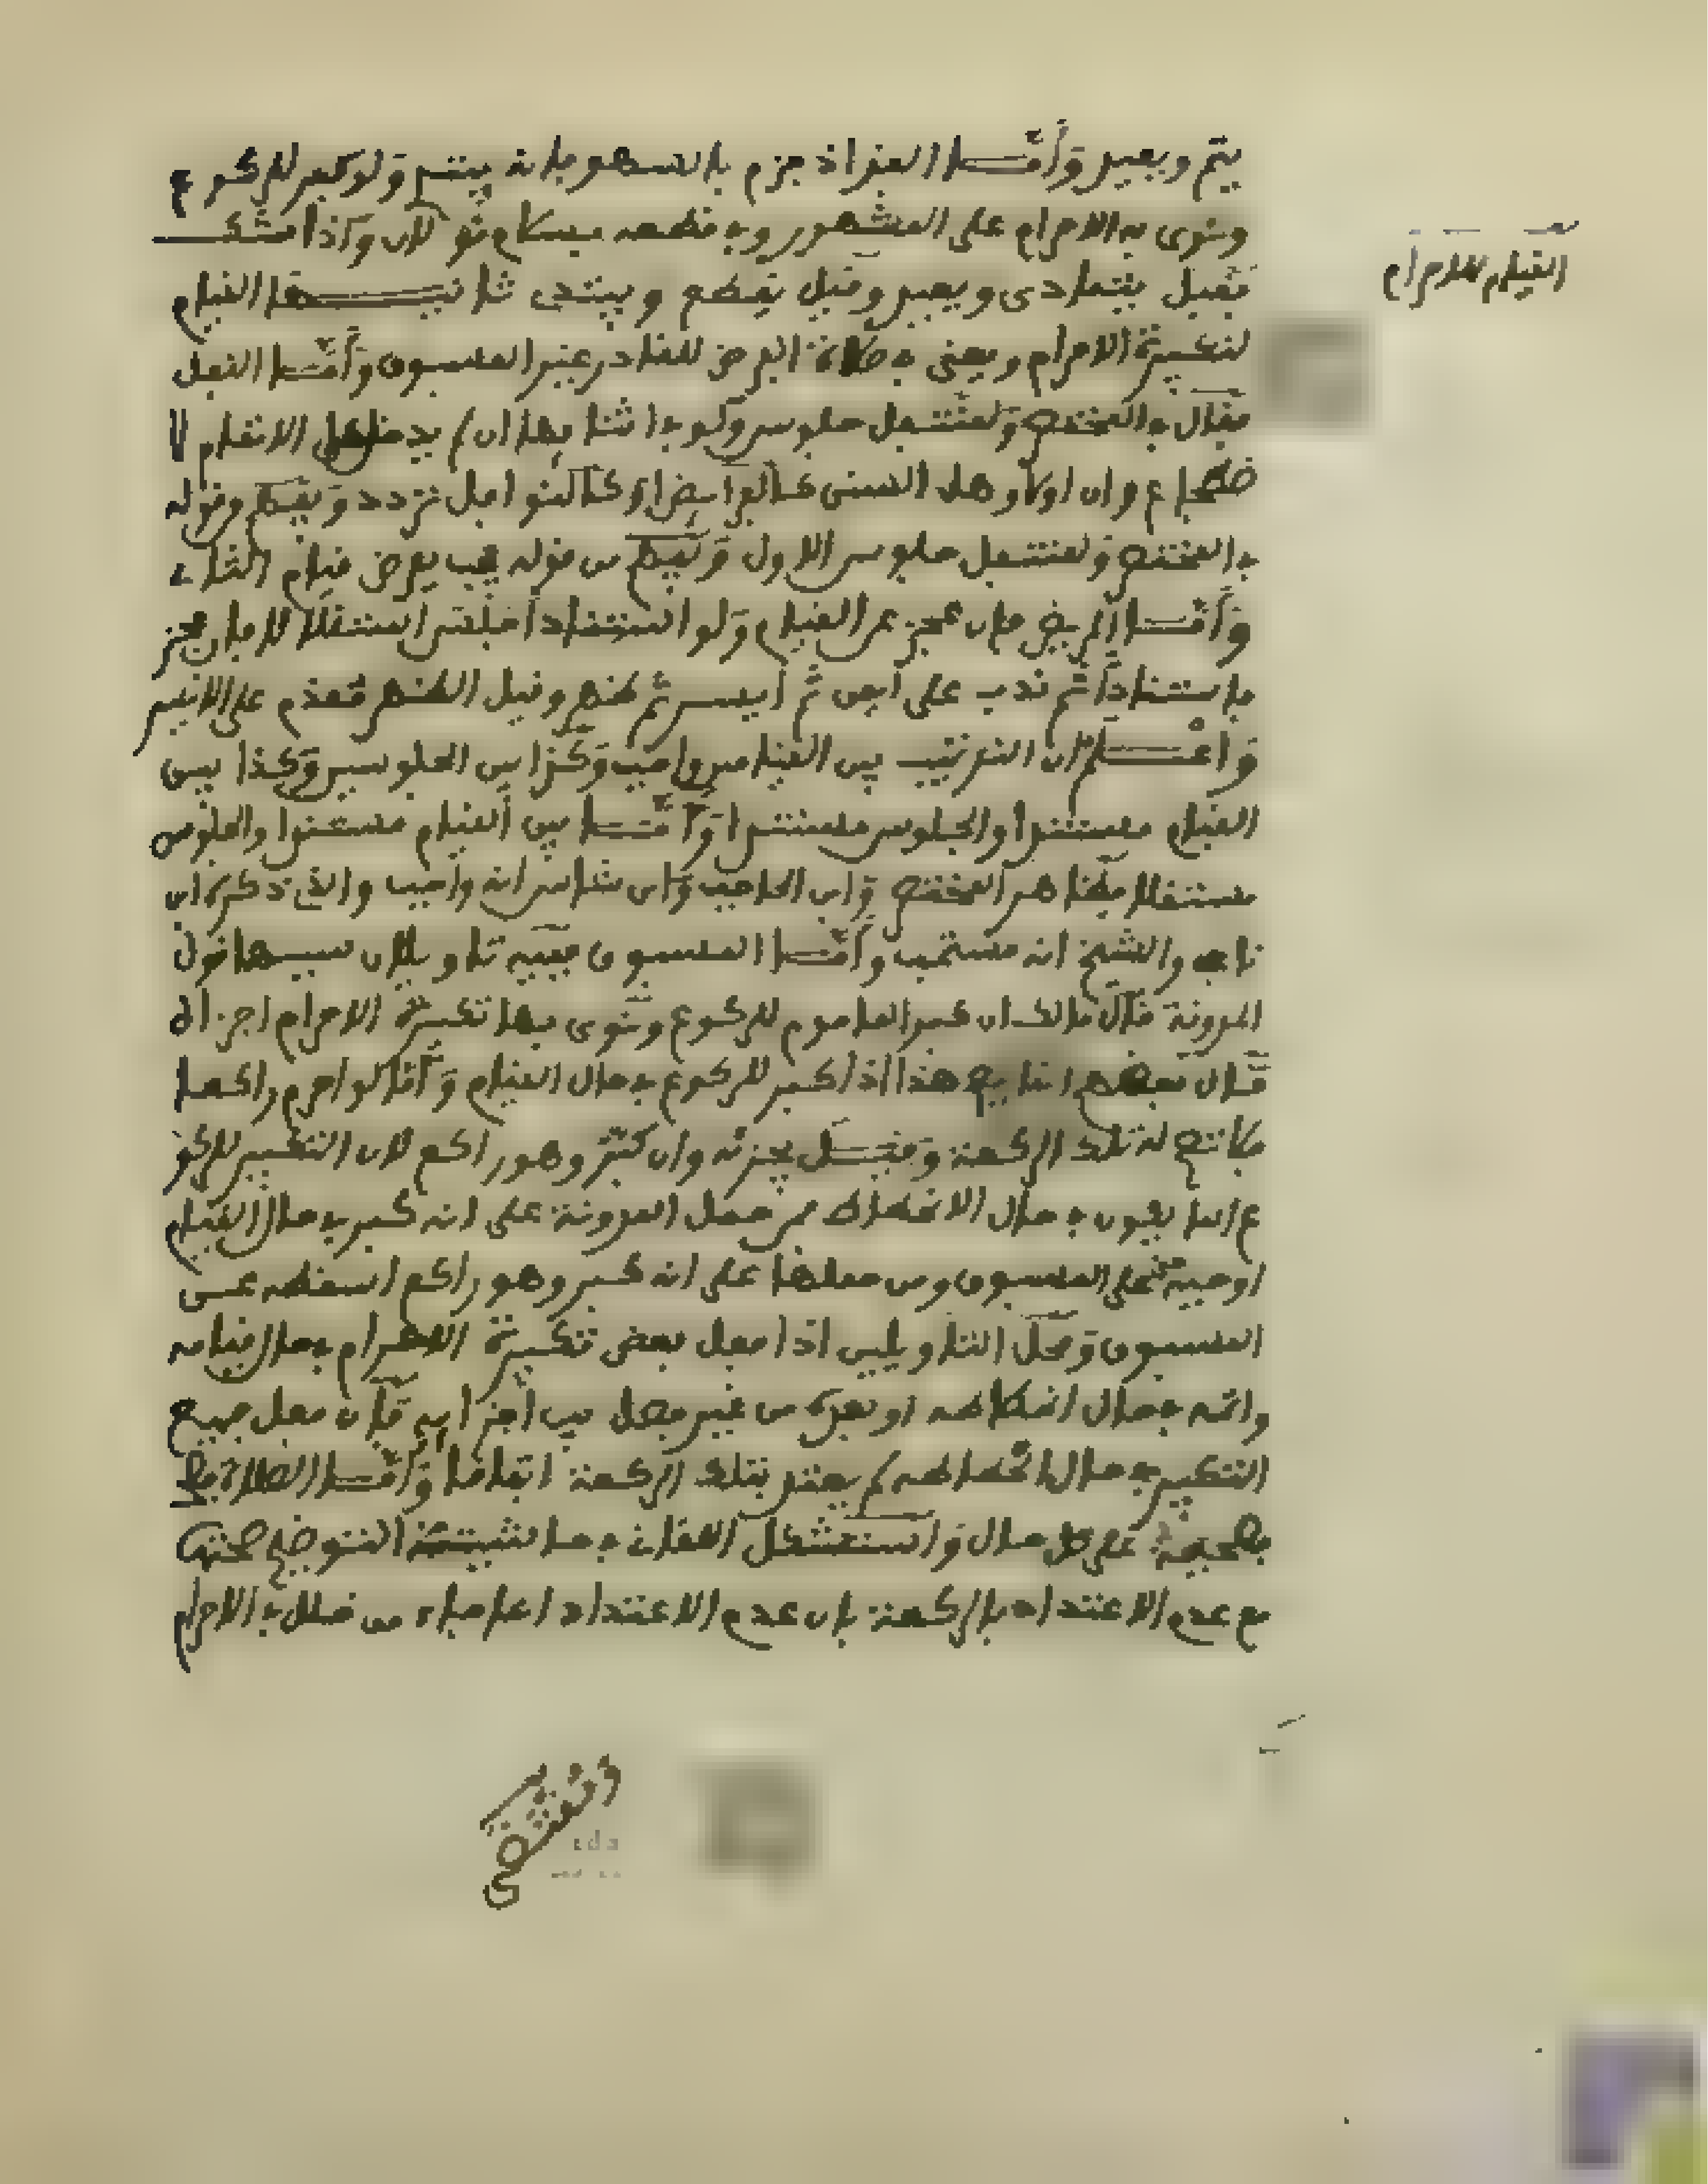 يتم ويعيد وأما الفذ اذا جزم بالسهو فإنه يبتدئ ولو كبر للركوع
ونوى به الاحرام على المشهور وفي قطعه بسلام قولان وإذا شك
فقيل يتمادى ويعيد وقيل يقطع ويبتدئ ثانيها القيام
القيام للاحرام
لتكبيرة الاحرام ويعني في صلاة الفرض للقادر غير المسبوق وأما النفل
فقال في المختصر ولمتنفل جلوس ولو في اثنائها ان لم يدخل على الاتمام لا
اضطجاع وان اولا وهل السنن كالفرايض او كالنوافل تردد وفهم وقوله
في المختصر ولمتنفل جلوس الاول وفهم من قوله يجب بفرض قيام الثاني
وأما المريض فإن عجز عن القيام ولو استنادا جلس استقلالا فإن عجز
فاستنادا ثم ندب على ايمن ثم ايسر ثم ظهر وقيل الظهر مقدم على الايسر
واعلم ان الترتيب بين القيامين واجب وكذا بين الجلوسين وكذا بين
القيام مستندا والجلوس مستندا وأما بين القيام مستندا والجلوس
مستقلا فظاهر المختصر وابن الحاجب وابن شاس انه واجب والذي ذكره ابن
ناجي والشيخ انه مستحب وأما المسبوق ففيه تاويلان سببهما قول
المدونة قال مالك ان كبر الماموم للركوع ونوى بها تكبيرة الاحرام اجزاه
قال بعضهم انما يصح هذا اذا كبر للركوع في حال القيام وأما لو احرم راكعا
فلا تصح له تلك الركعة وقيل يجزئه وان كبر وهو راكع لان التكبير للركو
ع انما يكون في حال الانحطاط فمن حمل المدونة على انه كبر في حال القيام
اوجبه على المسبوق ومن حملها على انه كبر وهو راكع اسقطه عن
المسبوق ومحل التاويلين اذا فعل بعض تكبيرة الاحرام في حال قيامه
واتمه في حال انحطاطه او بعده من غير فصل بين اجزايه فإن فعل جميع
التكبير في حال انحطاطه لم يعتد بتلك الركعة اتفاقا وأما الصلاة فـ
فصحيحة على كل حال واستشكل اللقاني في حاشية التوضيح صحتها
مع عدم الاعتداد بالركعة بان عدم الاعتداد انما جاء من خلل في الاحرام